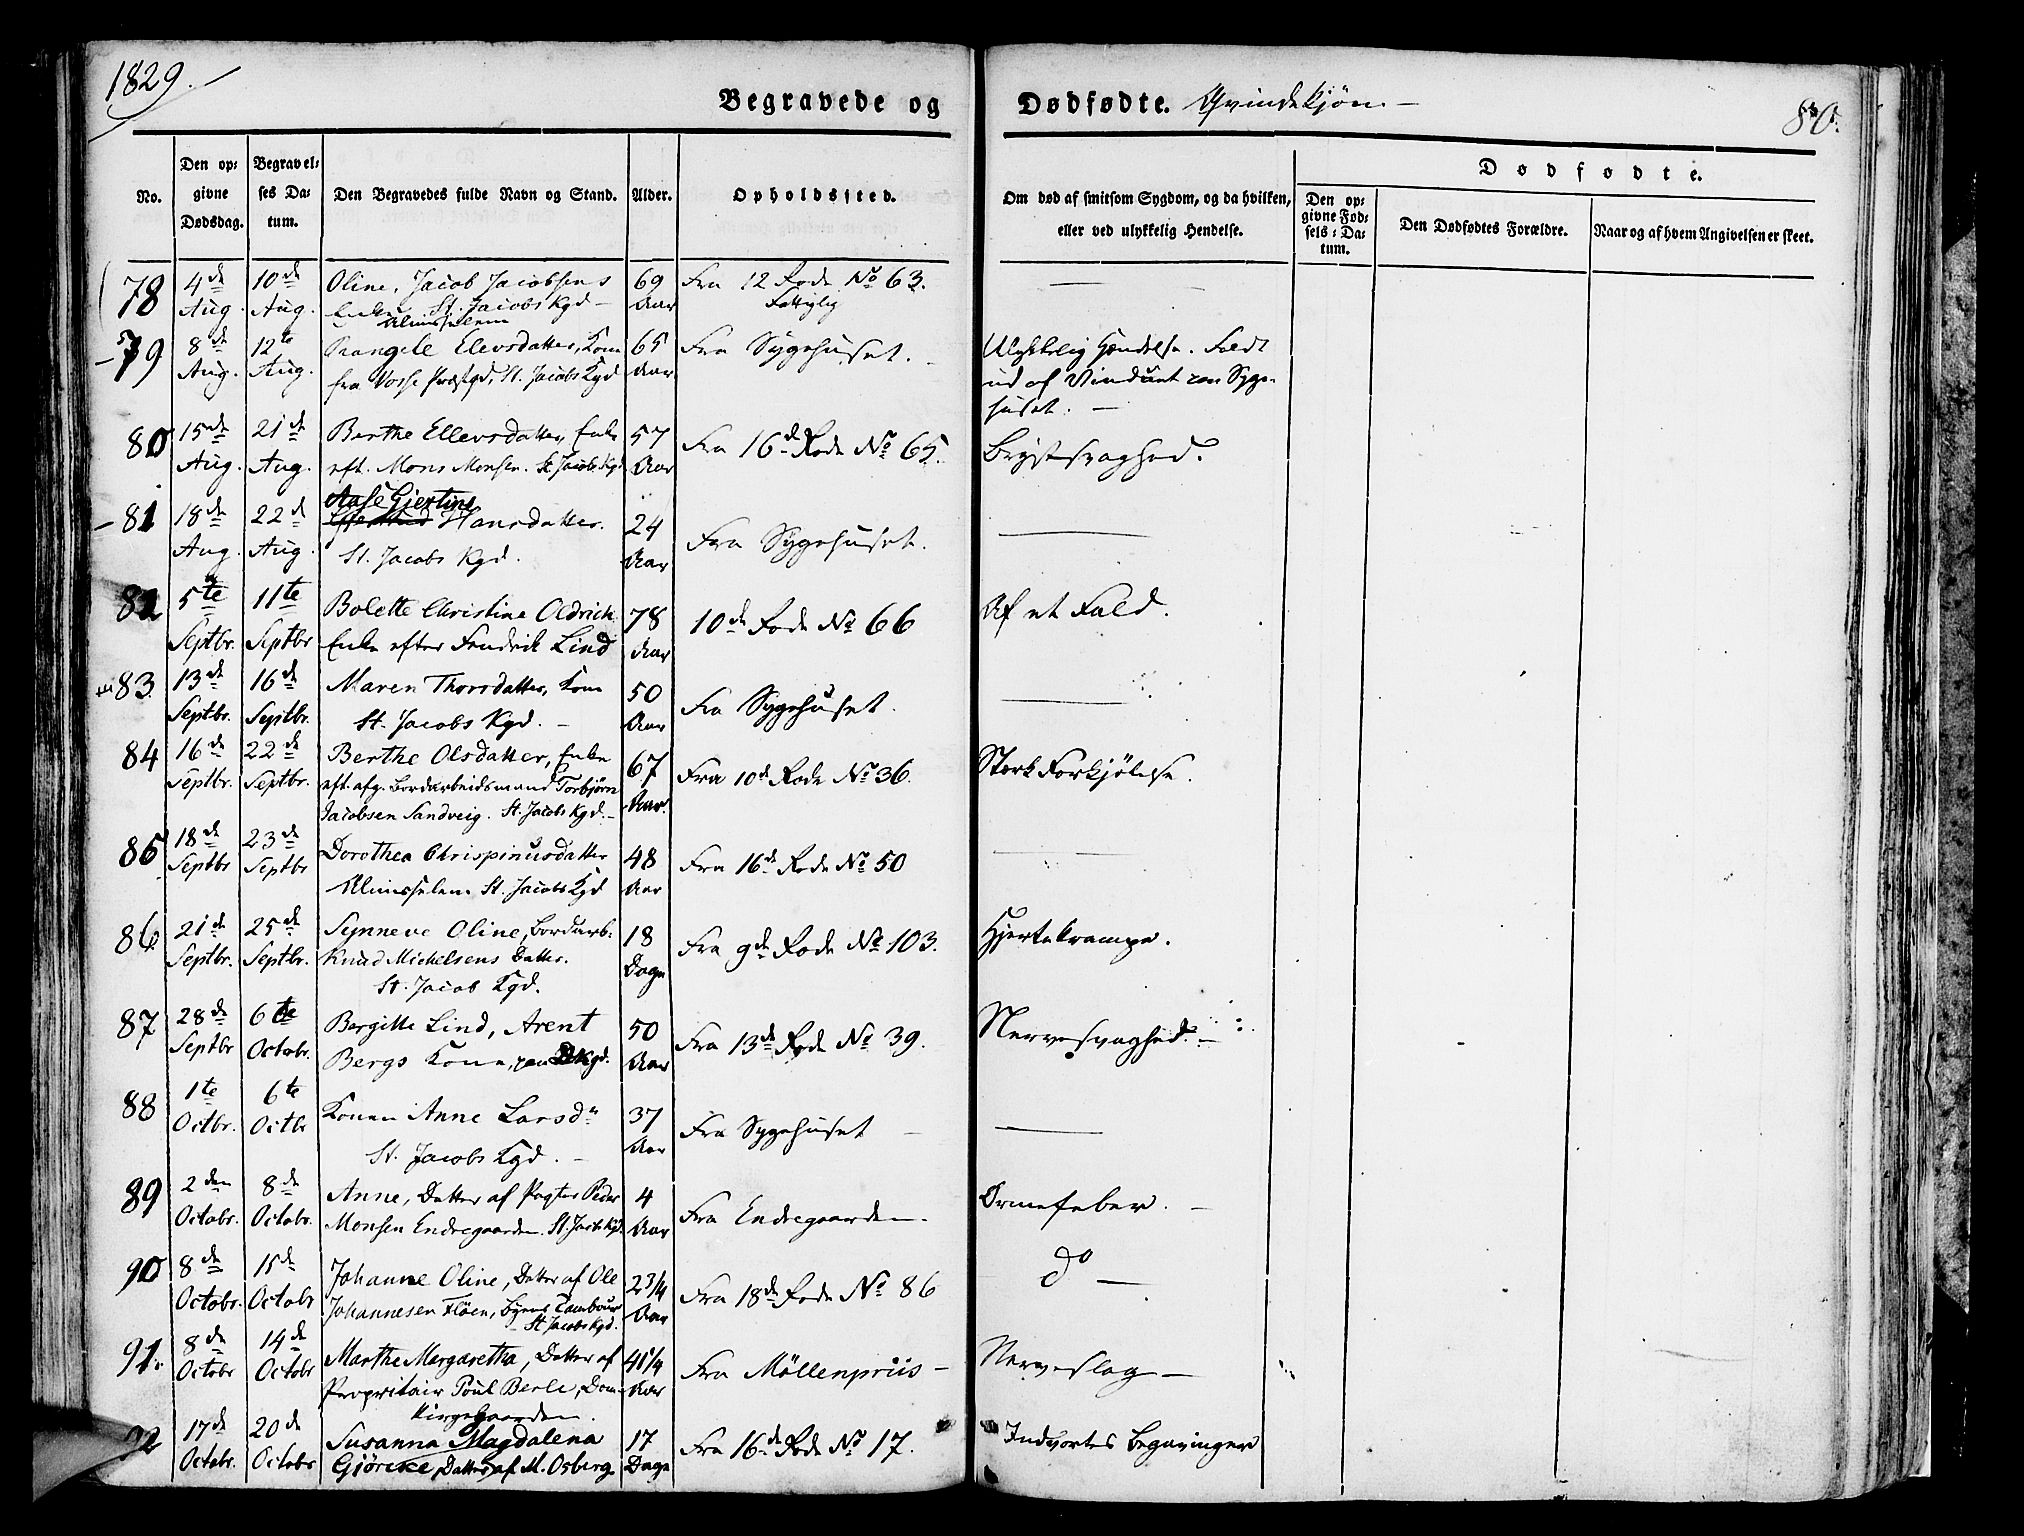 1829.
Begravede og Dødfødte. Qvindekjøn. –
80.
No.
Den op-givne Dødsdag.
Begravel-ses Da-tum.
Den Begravedes fulde Navn og Stand.
Alder.
Opholdssted.
Om død af smitsom Sygdom, og da hvilken, eller ved ulykkelig Hendelse.
Dødfødte.
Den op-givne Fød-sels-Da-tum.
Den Dødfødtes Forældre.
Naar og af hvem Angivelsen er skeet.
78 4de Aug. 10de Aug. Oline, Jacob Jacobsens 69 Aar Fra 12 Rode No 63. —
Enke. St. Jacobs Kgd –
Almisselem
79 8de Aug. 12te Aug. Elevsdatter, Kone 65 Aar Fra Sygehuset. Ulykkelig Hændelse. Faldt
fra Vosse Præstgd, St. Jacobs Kgd ud af Vinduet paa Syge-
huset. –
80 15de Aug. 21de Aug. Berthe Ellevsdatter, Enke 57 Aar Fra 16de Rode No 65. Brystsvaghed.
eft. Mons Monsen. St. Jacobs Kgd
81 18de Aug. 22de Aug. Aase Gjertine Hansdatter. 24 Aar Fra Sygehuset. —
St. Jacobs Kgd.
82 5te Septbr. 11te Septbr Bolette Christine Oldrich 78 Aar 10de Rode No 66 Af et Fald.
Enke efter Fredrik Lind
83. 13de Septbr. 16de Septbr. Maren Thorsdatter, Kone 50 Aar Fra Sygehuset. —
St. Jacobs Kgd. –
84 16de Septbr. 22de Septbr. Berthe Olsdatter, Enke 67 Aar. Fra 10de Rode No 36. Stærk Forkjølelse.
eft. afg. Bordarbeidsmand Torbjørn
Jacobsen Sandveig. St. Jacobs Kgd. –
85 18de Septbr 23de Septbr Dorothea Chrispinusdatter 48 Aar Fra 16de Rode No 50 —
Almisselem St. Jacobs Kgd
86. 21de Septbr. 25de Septbr. Synneve Oline, Bordarb. 18 Dage Fra 9de Rode No 103. Hjertekrampe.
Knud Michelsens Datter.
St. Jacob Kgd.
87 28de Septbr 6te Octobr. Bergitte Lind, Arent 50 Aar Fra 13de Rode No 39. Nervesvaghed. –
Bergs Kone, paa DKgd.
88 1te Octbr. 6te Octbr Konen Anne Larsdr 37 Aar Fra Sygehuset —
St. Jacobs Kgd. –
89 2den Octobr. 8de Octobr. Anne, Datter af Pagter Peder 4 Aar Fra Endregaarden. Ormefeber. –
Monsen Endregaarden. St. Jacobs Kgd.
90 8de Octobr. 15de Octobr Johanne Oline, Datter af Ole 2 3/4 Aar Fra 18de Rode No 86 do —
Johannesen Fløen, Byens Tambour
St. Jacobs Kgd.
91. 8de Octobr 14de Octobr Marthe Margaretha, Datter af 4 1/4 Aar Fra Möllenpriis – Nerveslag –
Propritair Poul Berle, Dom-
kirkegaarden.
92 17de Octobr. 20de Octobr Susanna Magdalena 17 Dage Fra 16de Rode No 17. Indvortes
Datter af M. Osberg.